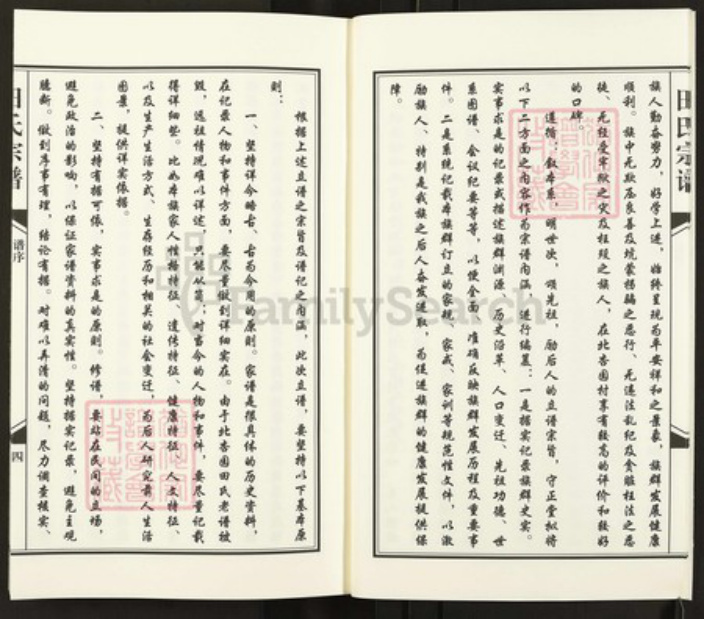 族人勤奋努力，好学上进，始终呈现为平安祥和之景象，族群发展健康
顺利。族中无欺压良善及坑蒙拐骗之恶行、无违法乱纪及贪赃枉法之恶
徒、无经受牢狱之灾及枉殁之族人，在北杏园村享有较高的评价和较好
的口碑。
遵循：叙本系、明世次、颂先祖、励后人的立谱宗旨，守正堂拟将
以下二方面之内容作为宗谱内涵，进行编纂：一是据实记录族群史实。
实事求是的记录或描述族群渊源、历史沿革、人口变迁、先祖功德、世
系图谱、会议纪要等等，以便全面、准确反映族群发展历程及重要事
件。二是系统记载本族群订立的家规、家戒、家训等规范性文件，以激
励族人、特别是我族之后人奋发进取，为促进族群的健康发展提供保
障。
田氏宗谱
根据上述立谱之宗旨及谱记之内涵，此次立谱，要坚持以下基本原
则：
一、坚持详今略古、古为今用的原则。家谱是很具体的历史资料，
在记录人物和事件方面，要尽量做到详细实在。由于北杏园田氏老谱被
毁，远祖情况难以详述，只能从简；对当今的人物和事件，要尽量记载
得详细些。比如本族家人性格特征、遗传特征、健康特征、人文特征、
以及生产生活方式、生存经历和相关的社会变迁，为后人研究前人生活
图景，提供详实依据。
二、坚持有据可依，实事求是的原则。修谱，要站在民间的立场，
避免政治的影响，以保证家谱资料的真实性。坚持据实记录，避免主观
臆断。做到序事有理，结论有据。对难以弄清的问题，尽力调查核实、
田氏宗谱
谱序
四
FamilySearch